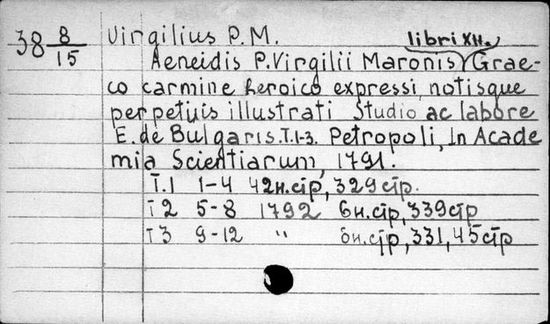 38 8/15 Virgilius P.M.
libri XII.
Aeneidis P. Virgilii Maronis Grae-
co carmine heroico expressi, notisque
perpetuis illustrati Studio ac labore
E. de Bulgaris. T.1-3. Petropoli, In Acade
mia Scientiarum, 1791.
T.1 1-4 42н.стр, 329стр.
T 2 5-8 1792 6н.стр, 339стр
T 3 9-12 " 6н.стр, 331, 45стр